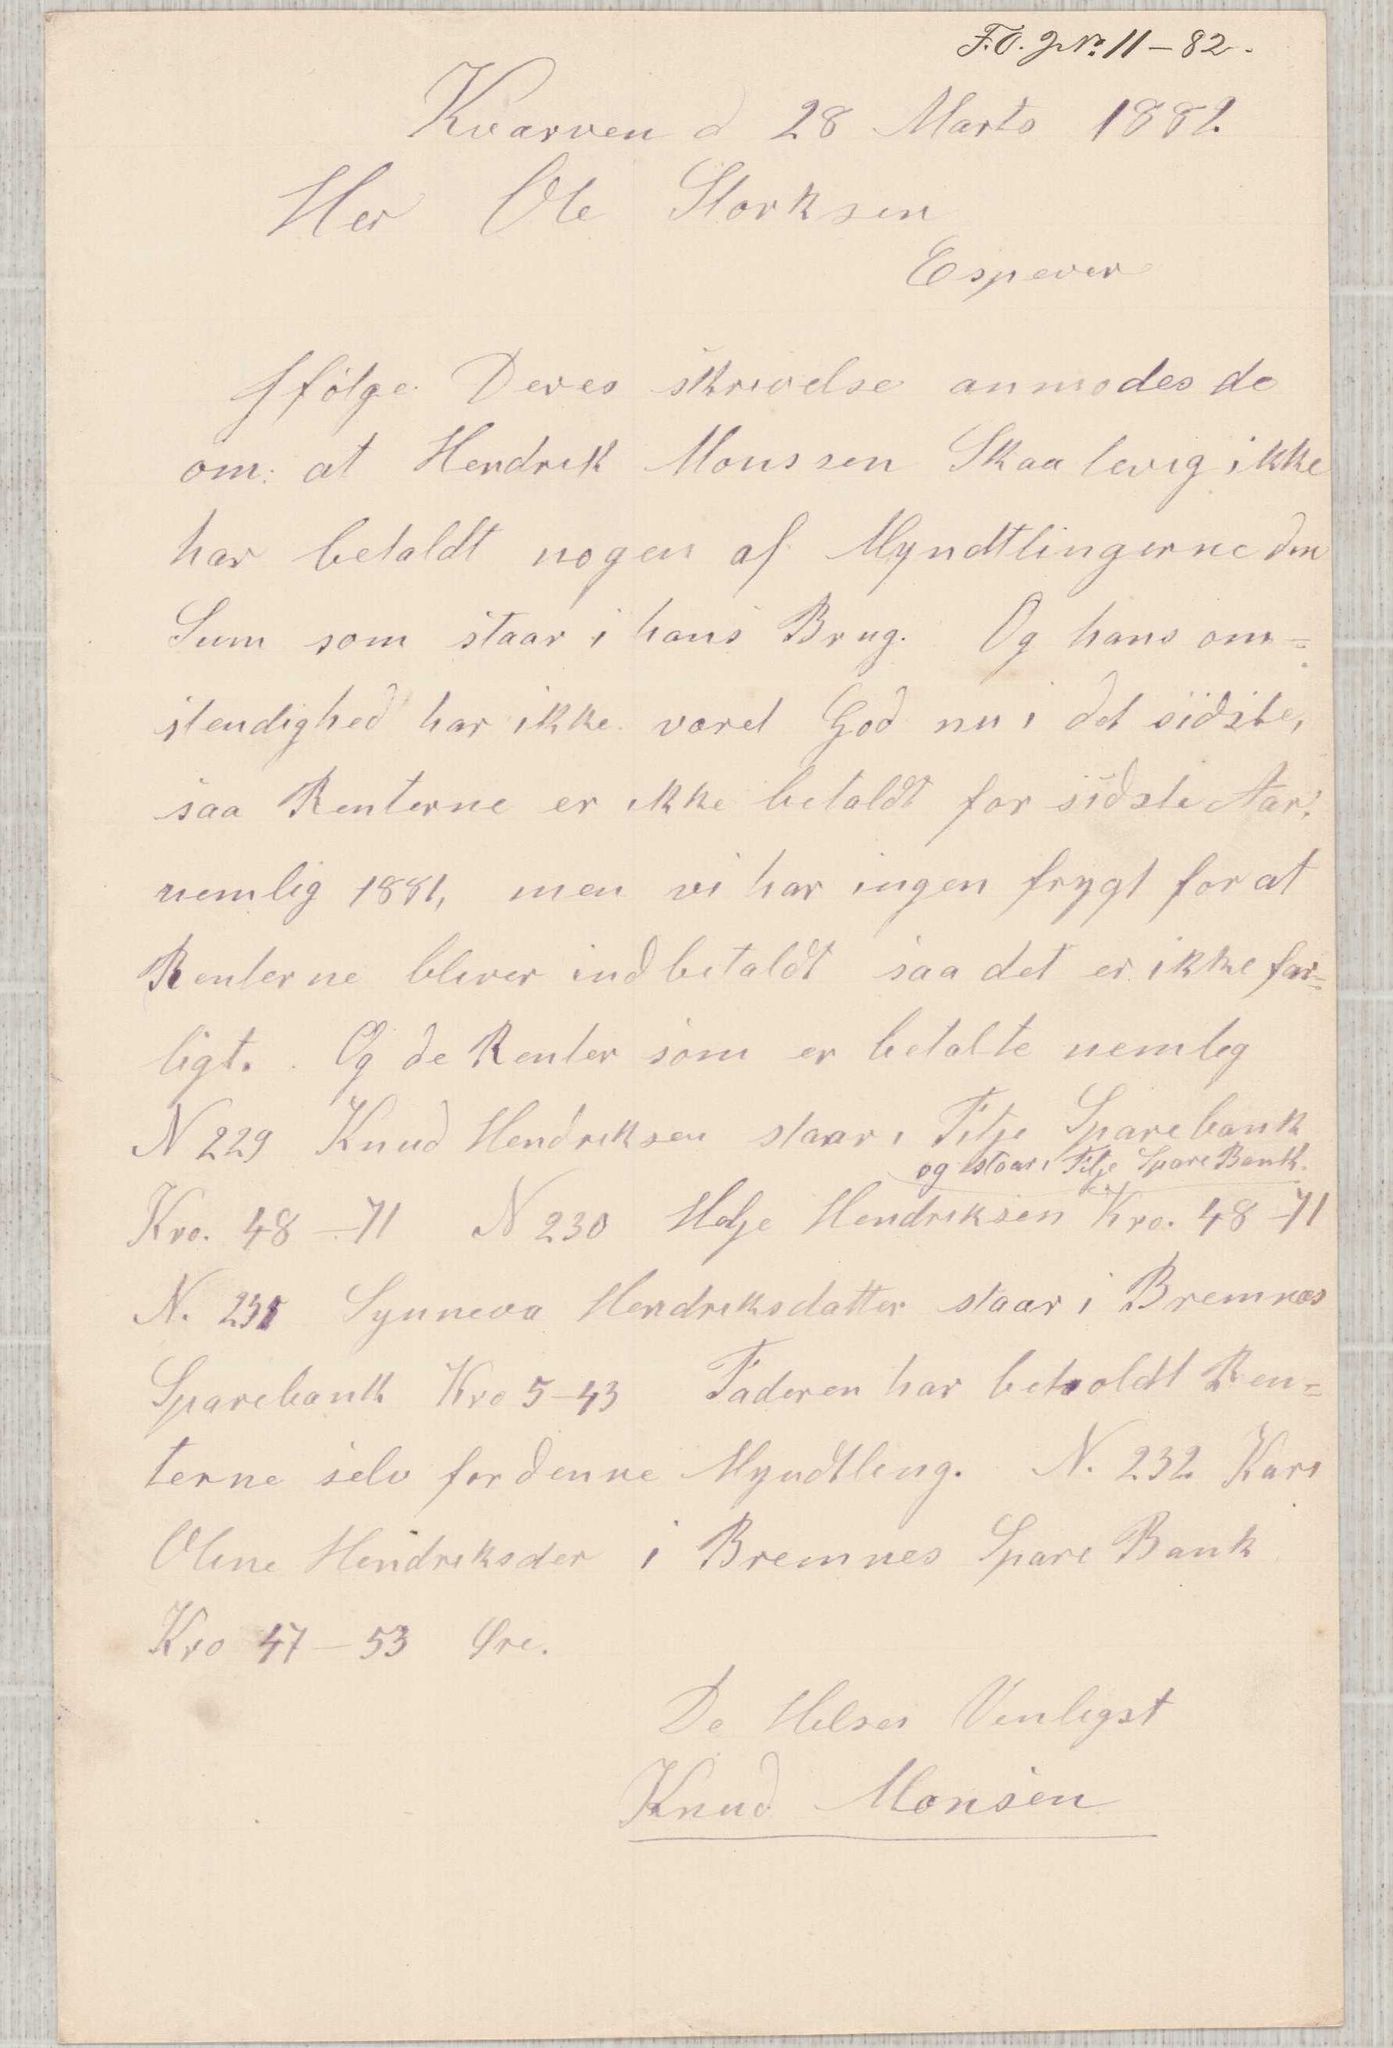 F.O. JNo. 11-82.
Kvarven d 28 Marts 1882.
Her Ole Storksen
Espever
Ifölge Deres skrivelse anmodes de
om: at Hendrik Monssen Skaalevig ikke
har betaldt nogen af Myndtlingerne den
Sum som staar i hans Brug. Og hans om=
stendighed har ikke voret God nu i det sidste,
saa Renterne er ikke betaldt for sidste Aar,
nemlig 1881, men vi har ingen frygt for at
Renterne bliver indbetaldt saa det er ikke far=
ligt. Og de Renter som er betalte nemlig
N 229 Knud Hendriksen staar i Fitje Sparebank
og staar i Fitje Spare Bank.
Kro. 48-71 N 230 Helje Hendriksen Kro. 48-71
N. 231 Synneva Hendriksdatter staar i Bremnæs
Sparebank Kro 5-43 Faderen har betaldt Ren=
terne selv for denne Myndtling. N. 232 Kari
Oline Hendriksder i Bremnes Spare Bank
Kro 47-53 Øre.
De Helses Venligst
Knud Monsen